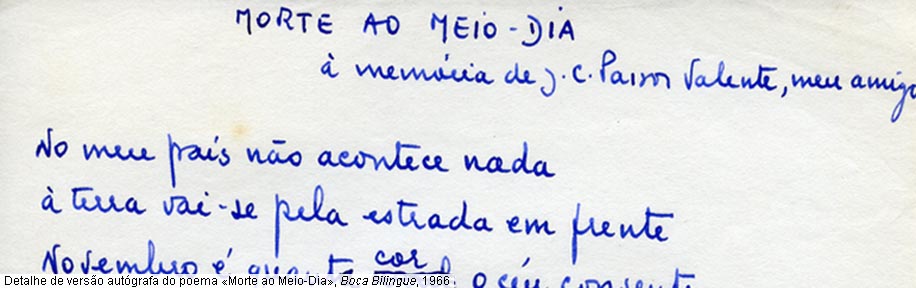 MORTE AO MEIO-DIA
à memória de J. C. Passos Valente, meu amigo
No meu país não acontece nada
à terra vai-se pela estrada em frente
Novembro é quanta cor o céu consente
Detalhe de versão autógrafa do poema «Morte ao Meio-Dia», Boca Bilingue, 1966